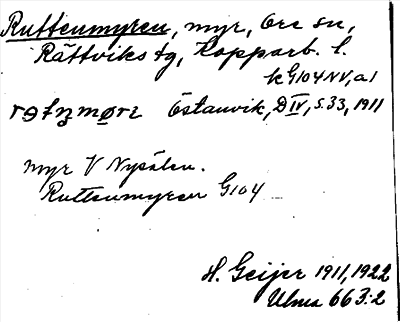 Ruttenmyren, myr, Ore sn,
Rättviks tg, Kopparb. l.
k G104 NV, a1
Östanvik, D IV, S.33, 1911
myr V Nysälen.
Ruttenmyren G104
H. Geijer 1911, 1922
Ulma 663:2